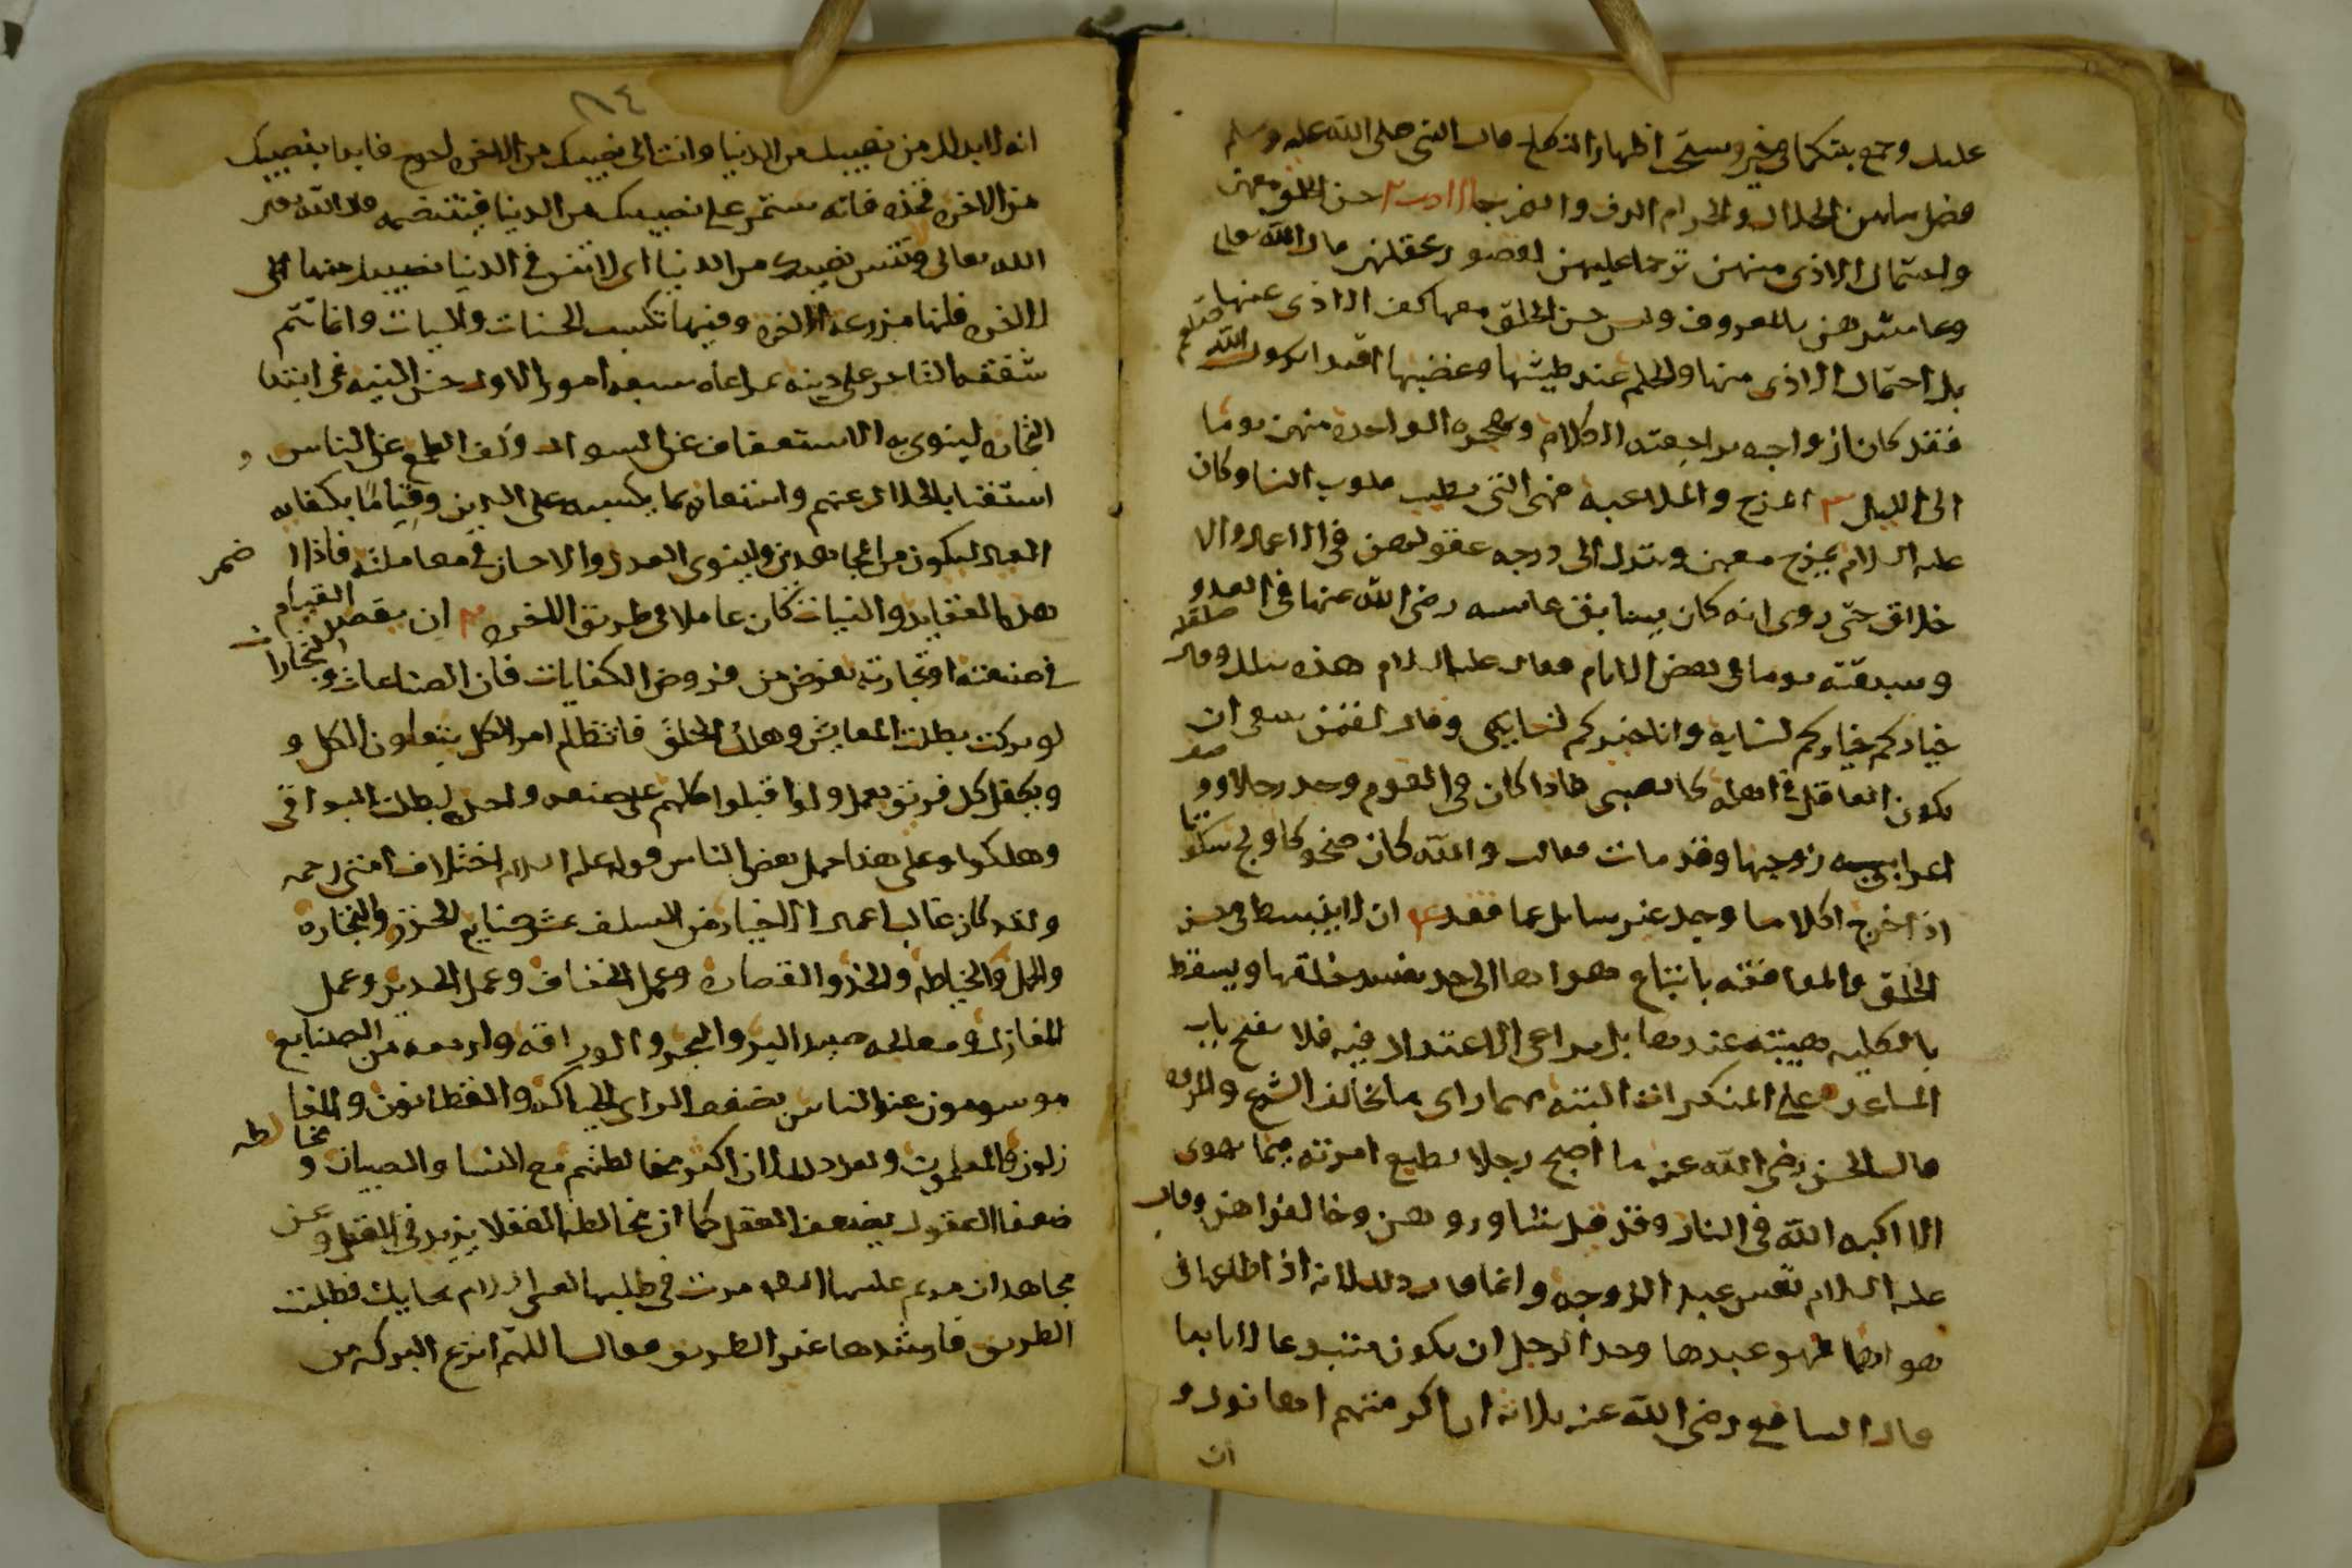 عليك وجمع بينكما في خير ويستحب اظهار النكاح قال النبي صلى الله عليه وسلم
فصل ما بين الحلال والحرام الدف والضرب الادب ٢ حسن الخلق معهن
واحتمال الاذى منهن ترحما عليهن لقصور عقلهن قال الله تعالى
وعاشروهن بالمعروف وليس حسن الخلق معها كف الاذى عنها
بل احتمال الاذى منها والحلم عند طيشها وغضبها اقتدا برسول الله صلعم
فقد كان ازواجه يراجعنه الكلام وتهجره الواحدة منهن يوما
الى الليل ٣ المزح والملاعبة فهى التى تطيب قلوب النسا وكان
عليه السلام يمزح معهن وينزل الى درجه عقولهن في الاعمال والا
خلاق حتى روى انه كان يسابق عايشه رضى الله عنها في العدو
وسبقته يوما في بعض الايام فقال عليه السلام هذه بتلك وقال
خياركم خياركم لنسايه وانا خيركم لنسايى وقال لقمن ينبغى ان
يكون العاقل في اهله كالصبى فاذا كان في القوم وجد رجلا ووصفت
اعرابيه زوجها وقد مات فقالت والله كان ضحوكا اذا ولج سكوتا
اذا خرج اكلا ما وجد غير سايل عما فقد ٤ ان لا ينبسط في حسن
الخلق والموافقة باتباع هواها الى حد يفسد خلقها ويسقط
بالكليه هيبته عندها بل يراعى الاعتدال فيه فلا يفتح باب
المساعدة على المنكرات البتة مهما راى ما يخالف الشرع والمروه
قال الحسن رضى الله عنه ما اصبح رجلا يطيع امرته فيما تهوى
الا اكبه الله في النار وقد قيل شاوروهن وخالفوهن وقال
عليه السلام تعس عبد الزوجه وانما قال ذلك لانه اذا اطاعها في
هواها فهو عبدها وحد الرجل ان يكون متبوعا لا تابعا
قال الشافعي رضى الله عنه ثلاثه ان اكرمتهم اهانوك و
ان
٨٤
انه لا بد لك من نصيبك من الدنيا وانت الى نصيبك من الاخرة احوج فابدا بنصيبك
من الاخرة فخذه فانه ستمر على نصيبك من الدنيا فتنتضمه قال الله
الله تعالى ولا تنس نصيبك من الدنيا اى لا تنس في الدنيا نصيبك منها الى
الاخرة فانها مزرعة الاخرة وفيها تكتسب الحسنات والسيات وانما تتم
شفقه التاجر على دينه بمراعاه سبعه امور الاول حسن النيه في ابتدا
التجاره لينوى به الاستعفاف عن السوال وكف الطمع عن الناس و
استغنا بالحلال عنهم واستعانه بما يكسبه على الدين وقياما بكفايه
العيال ليكون من المجاهدين ولينوى العدل والاحسان في معاملته فاذا اضمر
هذه العقايد والنيات كان عاملا في طريق الاخره ٢ ان يقصد القيام
في صنعته او تجارته بفرض من فروض الكفايات فان الصناعات والتجارات
لو تركت بطلت المعايش وهلك الخلق فانتظام امر الكل بتعاون الكل و
وبكفل كل فريق بعمل ولو اقبلوا كلهم على صنعه واحده لبطلت البواقى
وهلكوا وعلى هذا حمل بعض الناس قوله عليه السلام اختلاف امتى رحمه
ولقد كان غالب اعمال الاخيار من السلف عشر صنايع الخرز والتجاره
والحمل والخياطه والحذو والقصاره وعمل الخفاف وعمل الحديد وعمل
المغازل ومعالجه صيد البر والبحر والوراقه واربعه من الصنايع
موسومون عند الناس بضعف الراى الحياكه والقطانون والمغا
زلون والمعلمون ولعل ذلك لان اكثر مخالطتهم مع النسا والصبيان ومخالطه
ضعفا العقول يضعف العقل كما ان مخالطه العقلا يزيد في العقل وعن
مجاهد ان مريم عليها السلام مرت في طلبها لعيسى عليه السلام بحايك فطلبت
الطريق فارشدها غير الطريق فقالت اللهم انزع البركه من